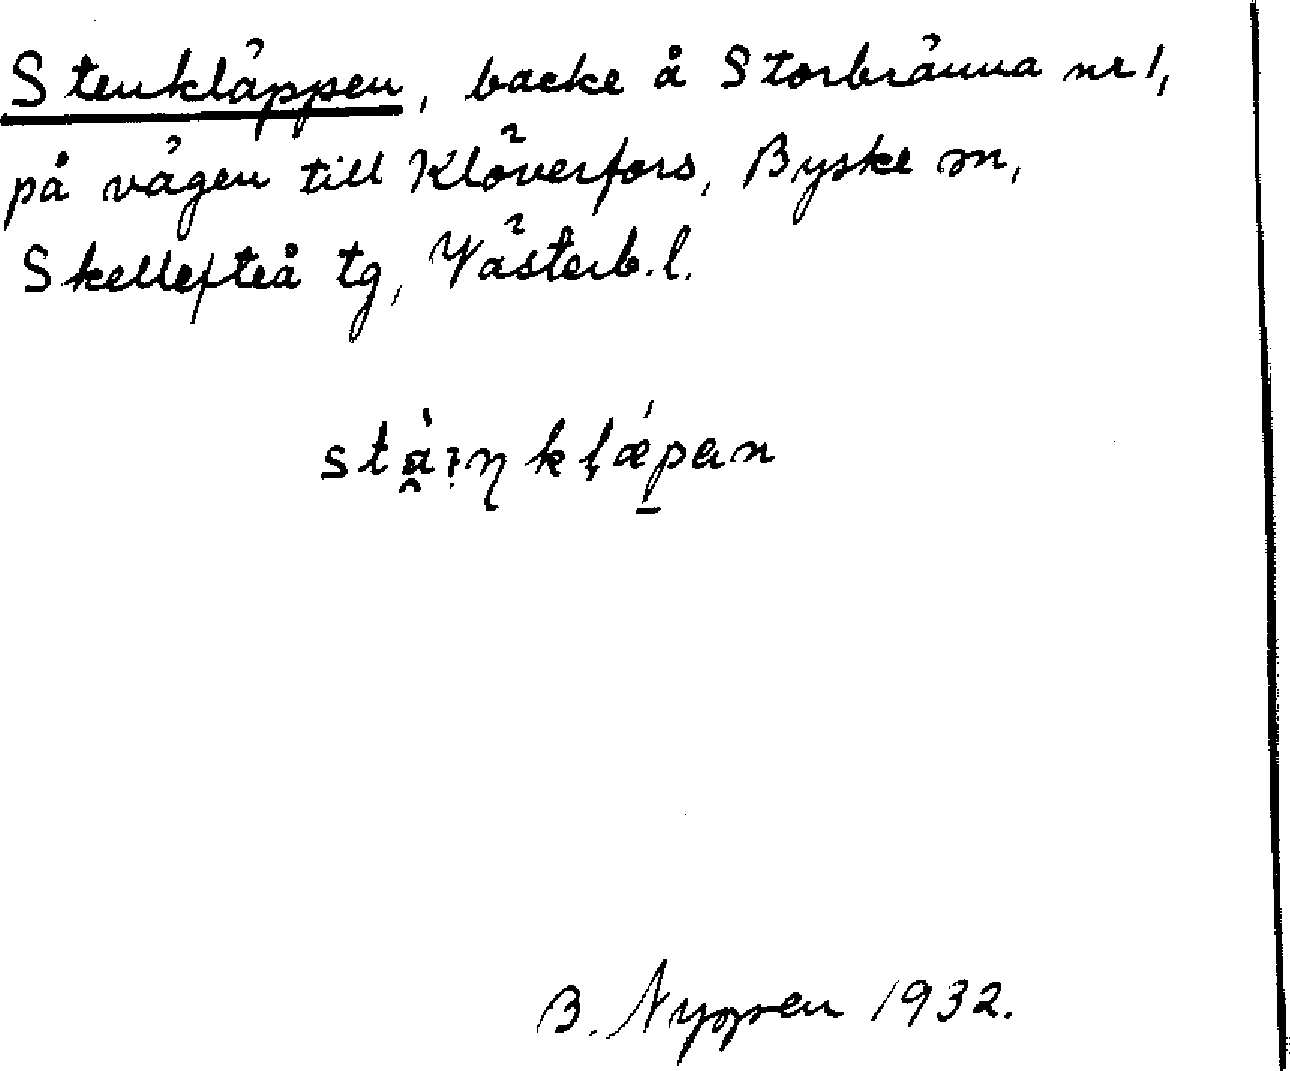 Stenkläppen, backe å Storbränna nr 1,
på vägen till Klöverfors, Byske sn,
Skellefteå tg, Västerb. l.
B. Nyppen 1932.